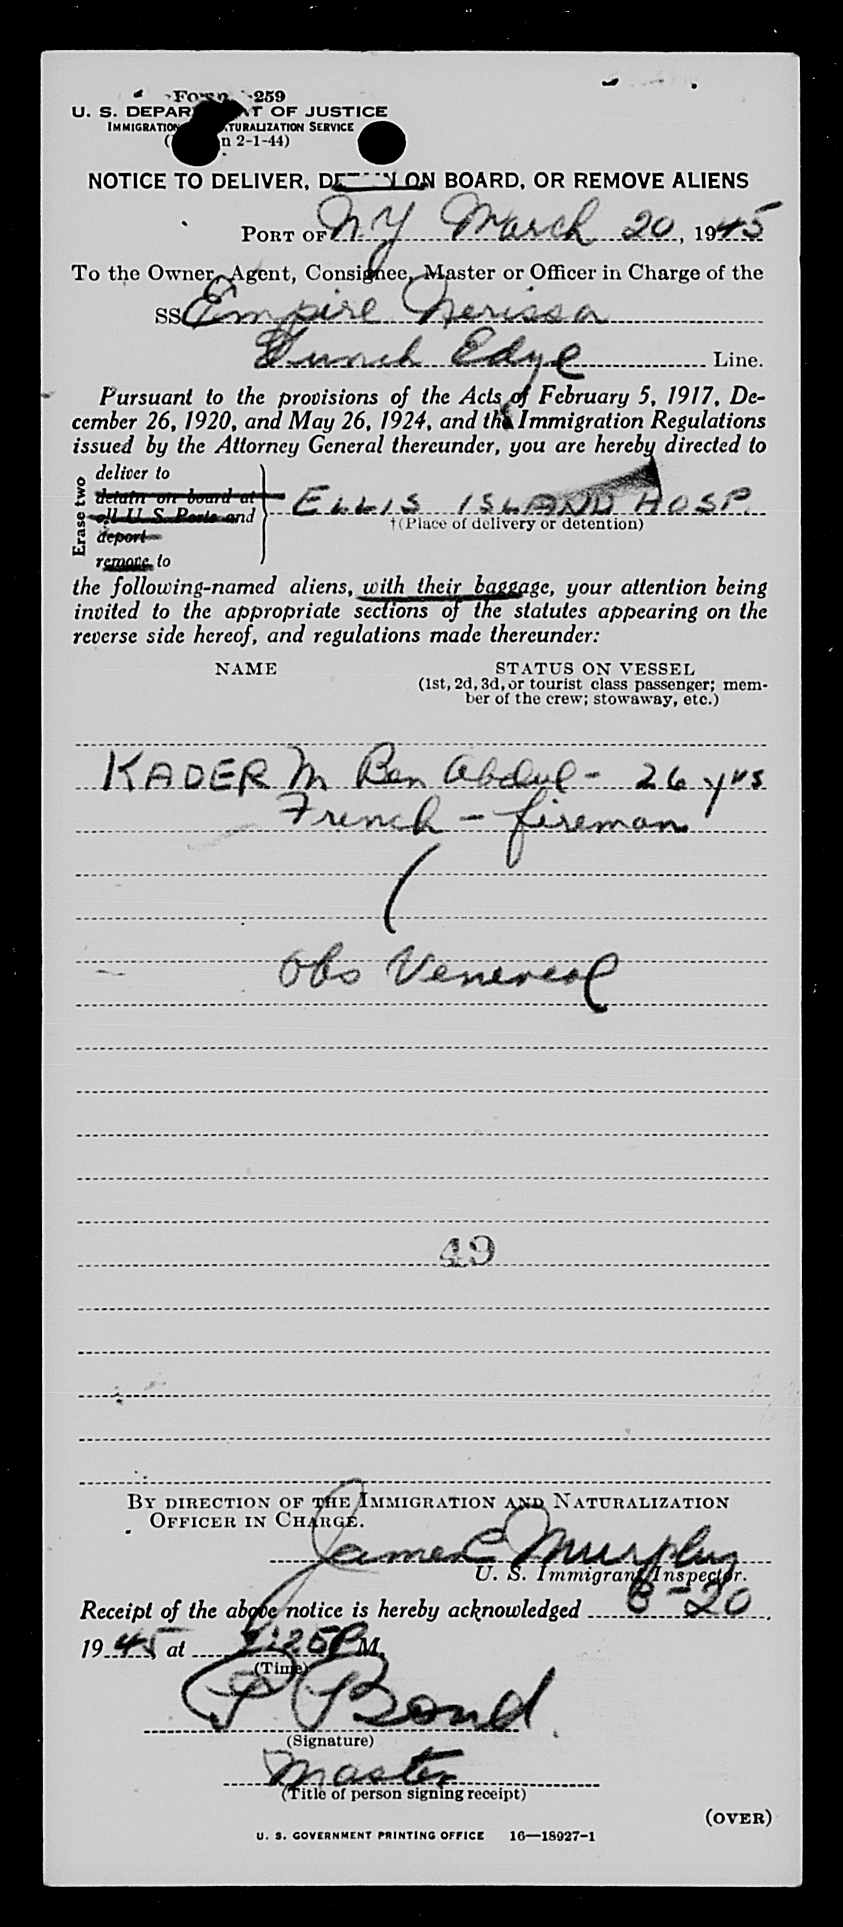 Form I-259
U. S. DEPARTMENT OF JUSTICE
IMMIGRATION NATURALIZATION SERVICE
2-1-44)
NOTICE TO DELIVER, DETAIN ON BOARD, OR REMOVE ALIENS
PORT OF N.Y March 20, 1945
To the Owner, Agent, Consignee, Master or Officer in Charge of the
SS Empire Nerissa
Funch Edye Line.
Pursuant to the provisions of the Acts of February 5, 1917, De-
cember 26, 1920, and May 26, 1924, and the Immigration Regulations
issued by the Attorney General thereunder, you are hereby directed to
Erase two
deliver to
detain on board at
all U. S. Ports and
deport
remove to
ELLIS ISLAND HOSP.
†(Place of delivery or detention)
the following-named aliens, with their baggage, your attention being
invited to the appropriate sections of the statutes appearing on the
reverse side hereof, and regulations made thereunder:
NAME STATUS ON VESSEL
(1st, 2d, 3d, or tourist class passenger; mem-
ber of the crew; stowaway, etc.)
KADER M Ben Abdul - 26 yrs
French - fireman
(
Obs Venereal
49
BY DIRECTION OF THE IMMIGRATION AND NATURALIZATION
OFFICER IN CHARGE.
James E Murphy
U. S. Immigrant Inspector.
Receipt of the above notice is hereby acknowledged 3-20,
1945 at :25 P M.
(Time)
P Bond
(Signature)
Master
(Title of person signing receipt)
(OVER)
U. S. GOVERNMENT PRINTING OFFICE 16—18927-1